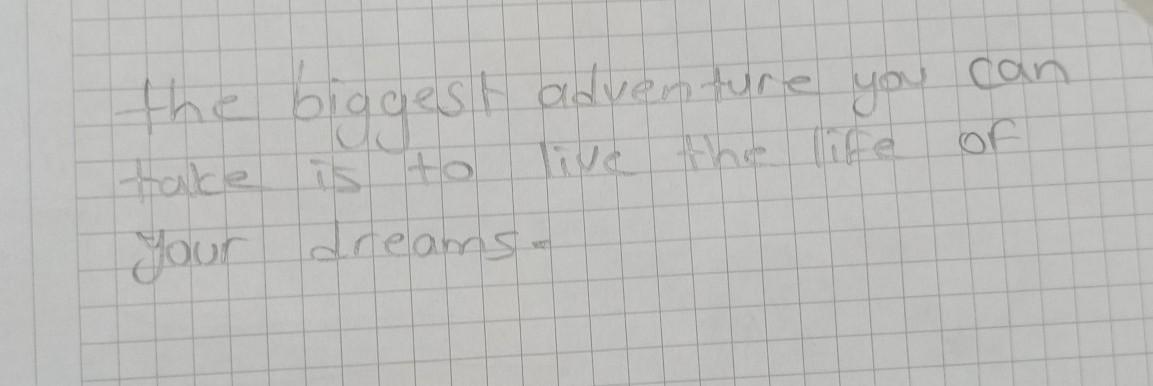 the biggest adventure you can
take is to live the life of
your dreams.